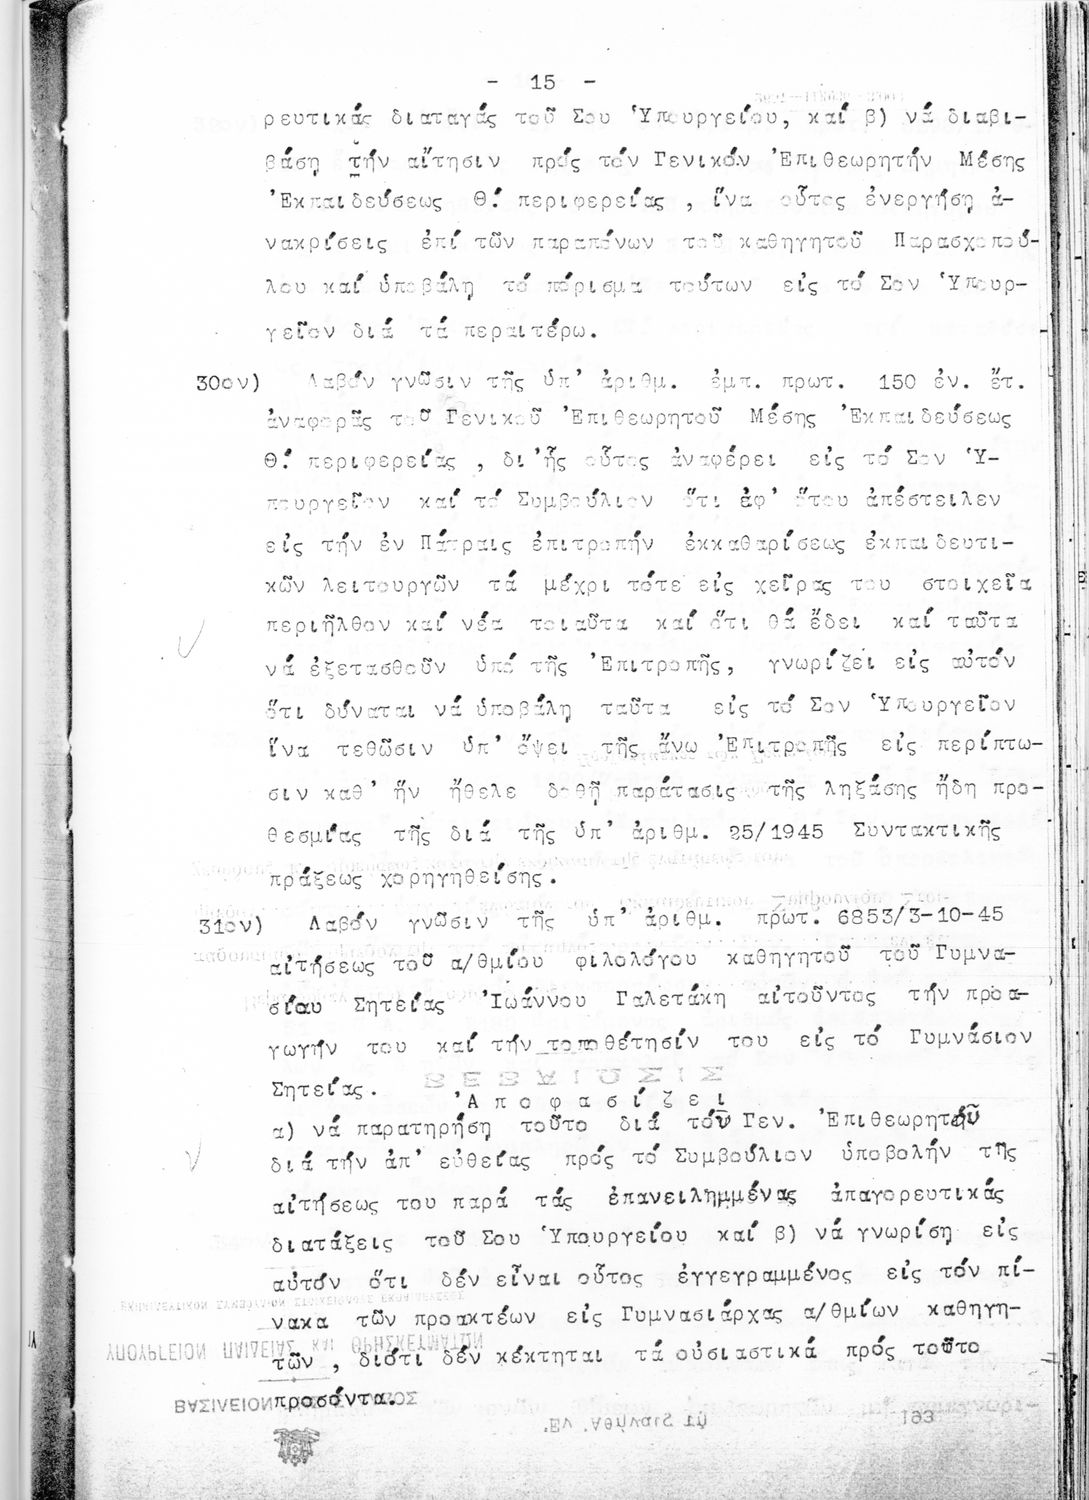 - 15 -
ρευτικάς διαταγάς τοῦ Σου Ὑπουργείου, καί β) νά διαβι-
βάση τήν αἴτησιν πρός τόν Γενικόν Ἐπιθεωρητήν Μέσης
Ἐκπαιδεύσεως Θ΄. περιφερείας , ἵνα οὗτος ἐνεργήση ἀ-
νακρίσεις ἐπί τῶν παραπόνων τοῦ καθηγητοῦ Παρασχοπού-
λου καί ὑποβάλη τό πόρισμα τούτων εἰς τό Σον Ὑπουρ-
γεῖον διά τά περαιτέρω.
30ον) Λαβόν γνῶσιν τῆς ὑπ' ἀριθμ. ἐμπ. πρωτ. 150 ἐν. ἔτ.
ἀναφορᾶς τοῦ Γενικοῦ Ἐπιθεωρητοῦ Μέσης Ἐκπαιδεύσεως
Θ΄. περιφερείας , δι'ἧς οὗτος ἀναφέρει εἰς τό Σον Ὑ-
πουργεῖον καί τό Συμβούλιον ὅτι ἀφ' ὅτου ἀπέστειλεν
εἰς τήν ἐν Πάτραις ἐπιτροπήν ἐκκαθαρίσεως ἐκπαιδευτι-
κῶν λειτουργῶν τά μέχρι τότε εἰς χεῖρας του στοιχεῖα
περιῆλθον καί νέα τοιαῦτα καί ὅτι θά ἔδει καί ταῦτα
νά ἐξετασθοῦν ὑπό τῆς Ἐπιτροπῆς, γνωρίζει εἰς αὐτόν
ὅτι δύναται νά ὑποβάλη ταῦτα εἰς τό Σον Ὑπουργεῖον
ἵνα τεθῶσιν ὑπ' ὄψει τῆς ἄνω Ἐπιτροπῆς εἰς περίπτω-
σιν καθ' ἥν ἤθελε δοθῆ παράτασις τῆς ληξάσης ἤδη προ-
θεσμίας τῆς διά τῆς ὑπ' ἀριθμ. 25/1945 Συντακτικῆς
πράξεως χορηγηθείσης.
31ον) Λαβόν γνῶσιν τῆς ὑπ' ἀριθμ. πρωτ. 6853/3-10-45
αἰτήσεως τοῦ α/θμίου φιλολόγου καθηγητοῦ τοῦ Γυμνα-
σίου Σητείας Ἰωάννου Γαλετάκη αἰτοῦντος τήν προα-
γωγήν του καί τήν τοποθέτησίν του εἰς τό Γυμνάσιον
Σητείας.
Ἀ π ο φ α σ ί ζ ε ι
α) νά παρατηρήση τοῦτο διά τοῦ Γεν. Ἐπιθεωρητοῦ
διά τήν ἀπ' εὐθείας πρός τό Συμβούλιον ὑποβολήν τῆς
αἰτήσεως του παρά τάς ἐπανειλημμένας ἀπαγορευτικάς
διατάξεις τοῦ Σου Ὑπουργείου καί β) νά γνωρίση εἰς
αὐτόν ὅτι δέν εἶναι οὗτος ἐγγεγραμμένος εἰς τόν πί-
νακα τῶν προακτέων εἰς Γυμνασιάρχας α/θμίων καθηγη-
τῶν , διότι δέν κέκτηται τά οὐσιαστικά πρός τοῦτο
προσόντα.